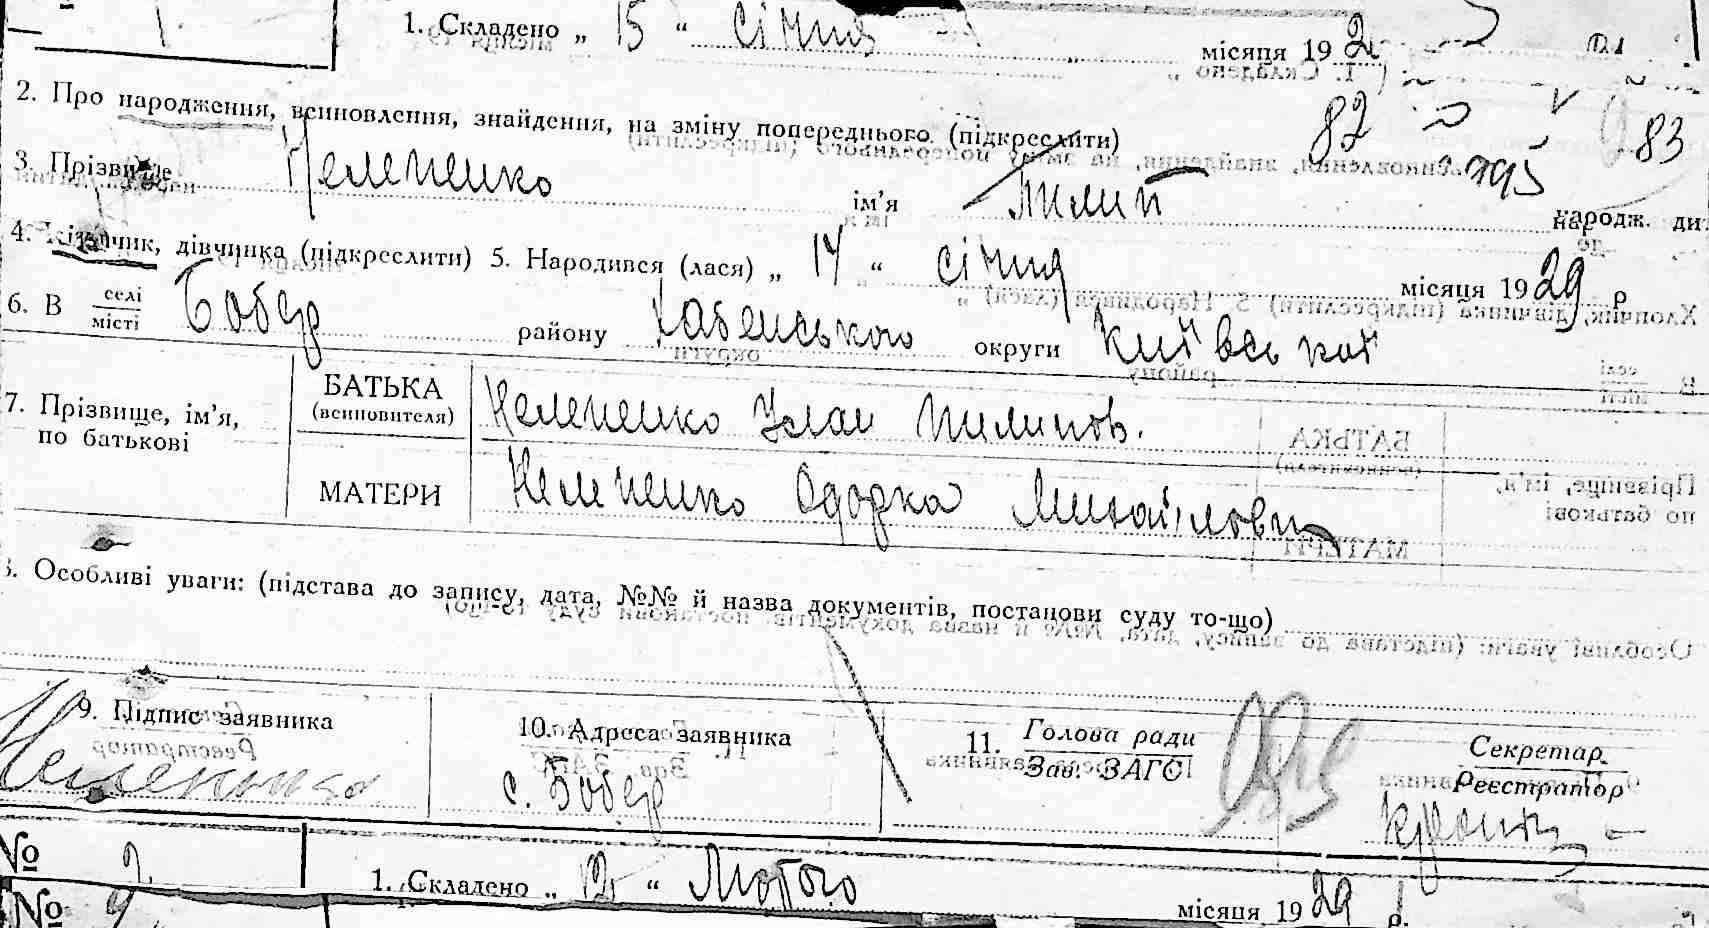 1. Складено „ 15 “ січня місяця 192
2. Про народження, всиновлення, знайдення, на зміну попереднього (підкреслити) 87 83
3. Прізвище Нелепенко ім’я Пилип народж. ди
795
4. Хлопчик, дівчинка (підкреслити) 5. Народився (лася) „ 14 “ січня місяця 1929 р
6. В селі місті Бобер району Хабенського округи Київської
7. Прізвище, ім’я, по батькові
БАТЬКА (всиновителя) Нелепенко Улан Пилипов.
МАТЕРИ Нелепенко Одарка Михайловна
8. Особливі уваги: (підстава до запису, дата, №№ й назва документів, постанови суду то-що)
9. Підпис заявника 10. Адреса заявника 11. Голова ради Зав. ЗАГС Секретар Реєстратор
Нелепенко с. Бобер
№ 2 1. Складено „ 12 “ Лютого місяця 1929 р.
№ 2